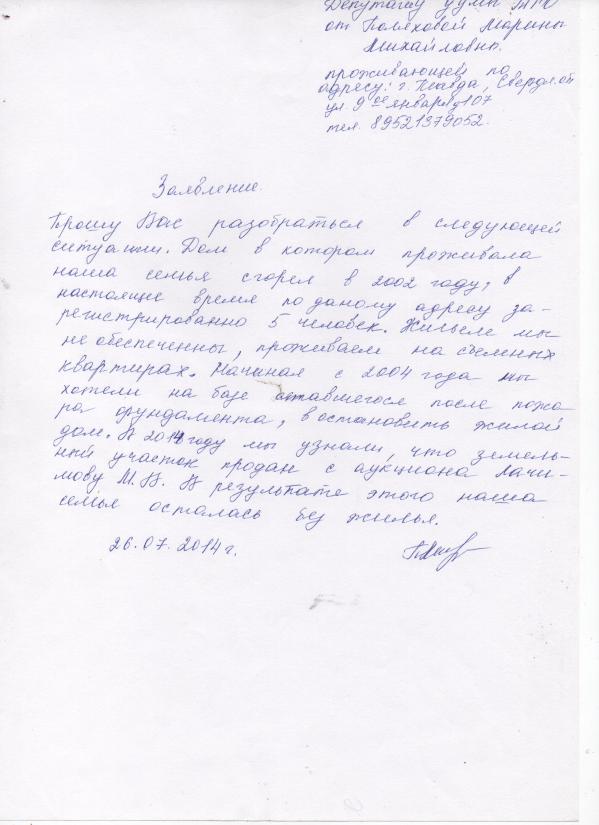 Депутату думы ТГО
от Поляховой Марины
Михайловны.
проживающей по
адресу: г. Тавда, Свердл.об
ул. 9ое января д 107
тел. 89521379052.
Заявление.
Прошу Вас разобраться в следующей
ситуации. Дом в котором проживала
наша семья сгорел в 2002 году, в
настоящее время по даному адресу за-
регистрированно 5 человек. Жильем мы
не обеспеченны, проживаем на сьемных
квартирах. Начиная с 2004 года мы
хотели на базе оставшегося после пожа
ра фундамента, востановить жилой
дом. В 2014 году мы узнали, что земель-
ный участок продан с аукциона Лачи-
мову М. В. В результате этого наша
семья осталась без жилья.
26.07.2014 г.